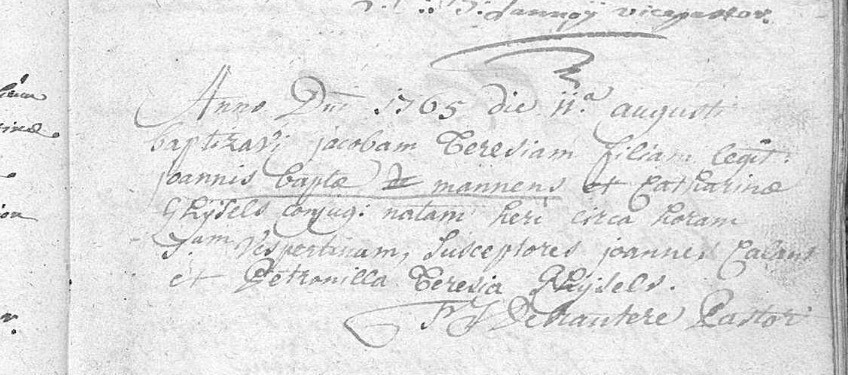 Jannoij vicepastor.
Anno Dni 1765 die 11.a augusti
baptizavi jacobam Teresiam filiam legit:
joannis baptæ De mannens et Catharinæ
Ghijsels conjug: natam heri circa horam
5.am Vespertinam, Susceptores joannes Calant
et Petronilla Teresia Ghijsels.
Pastor